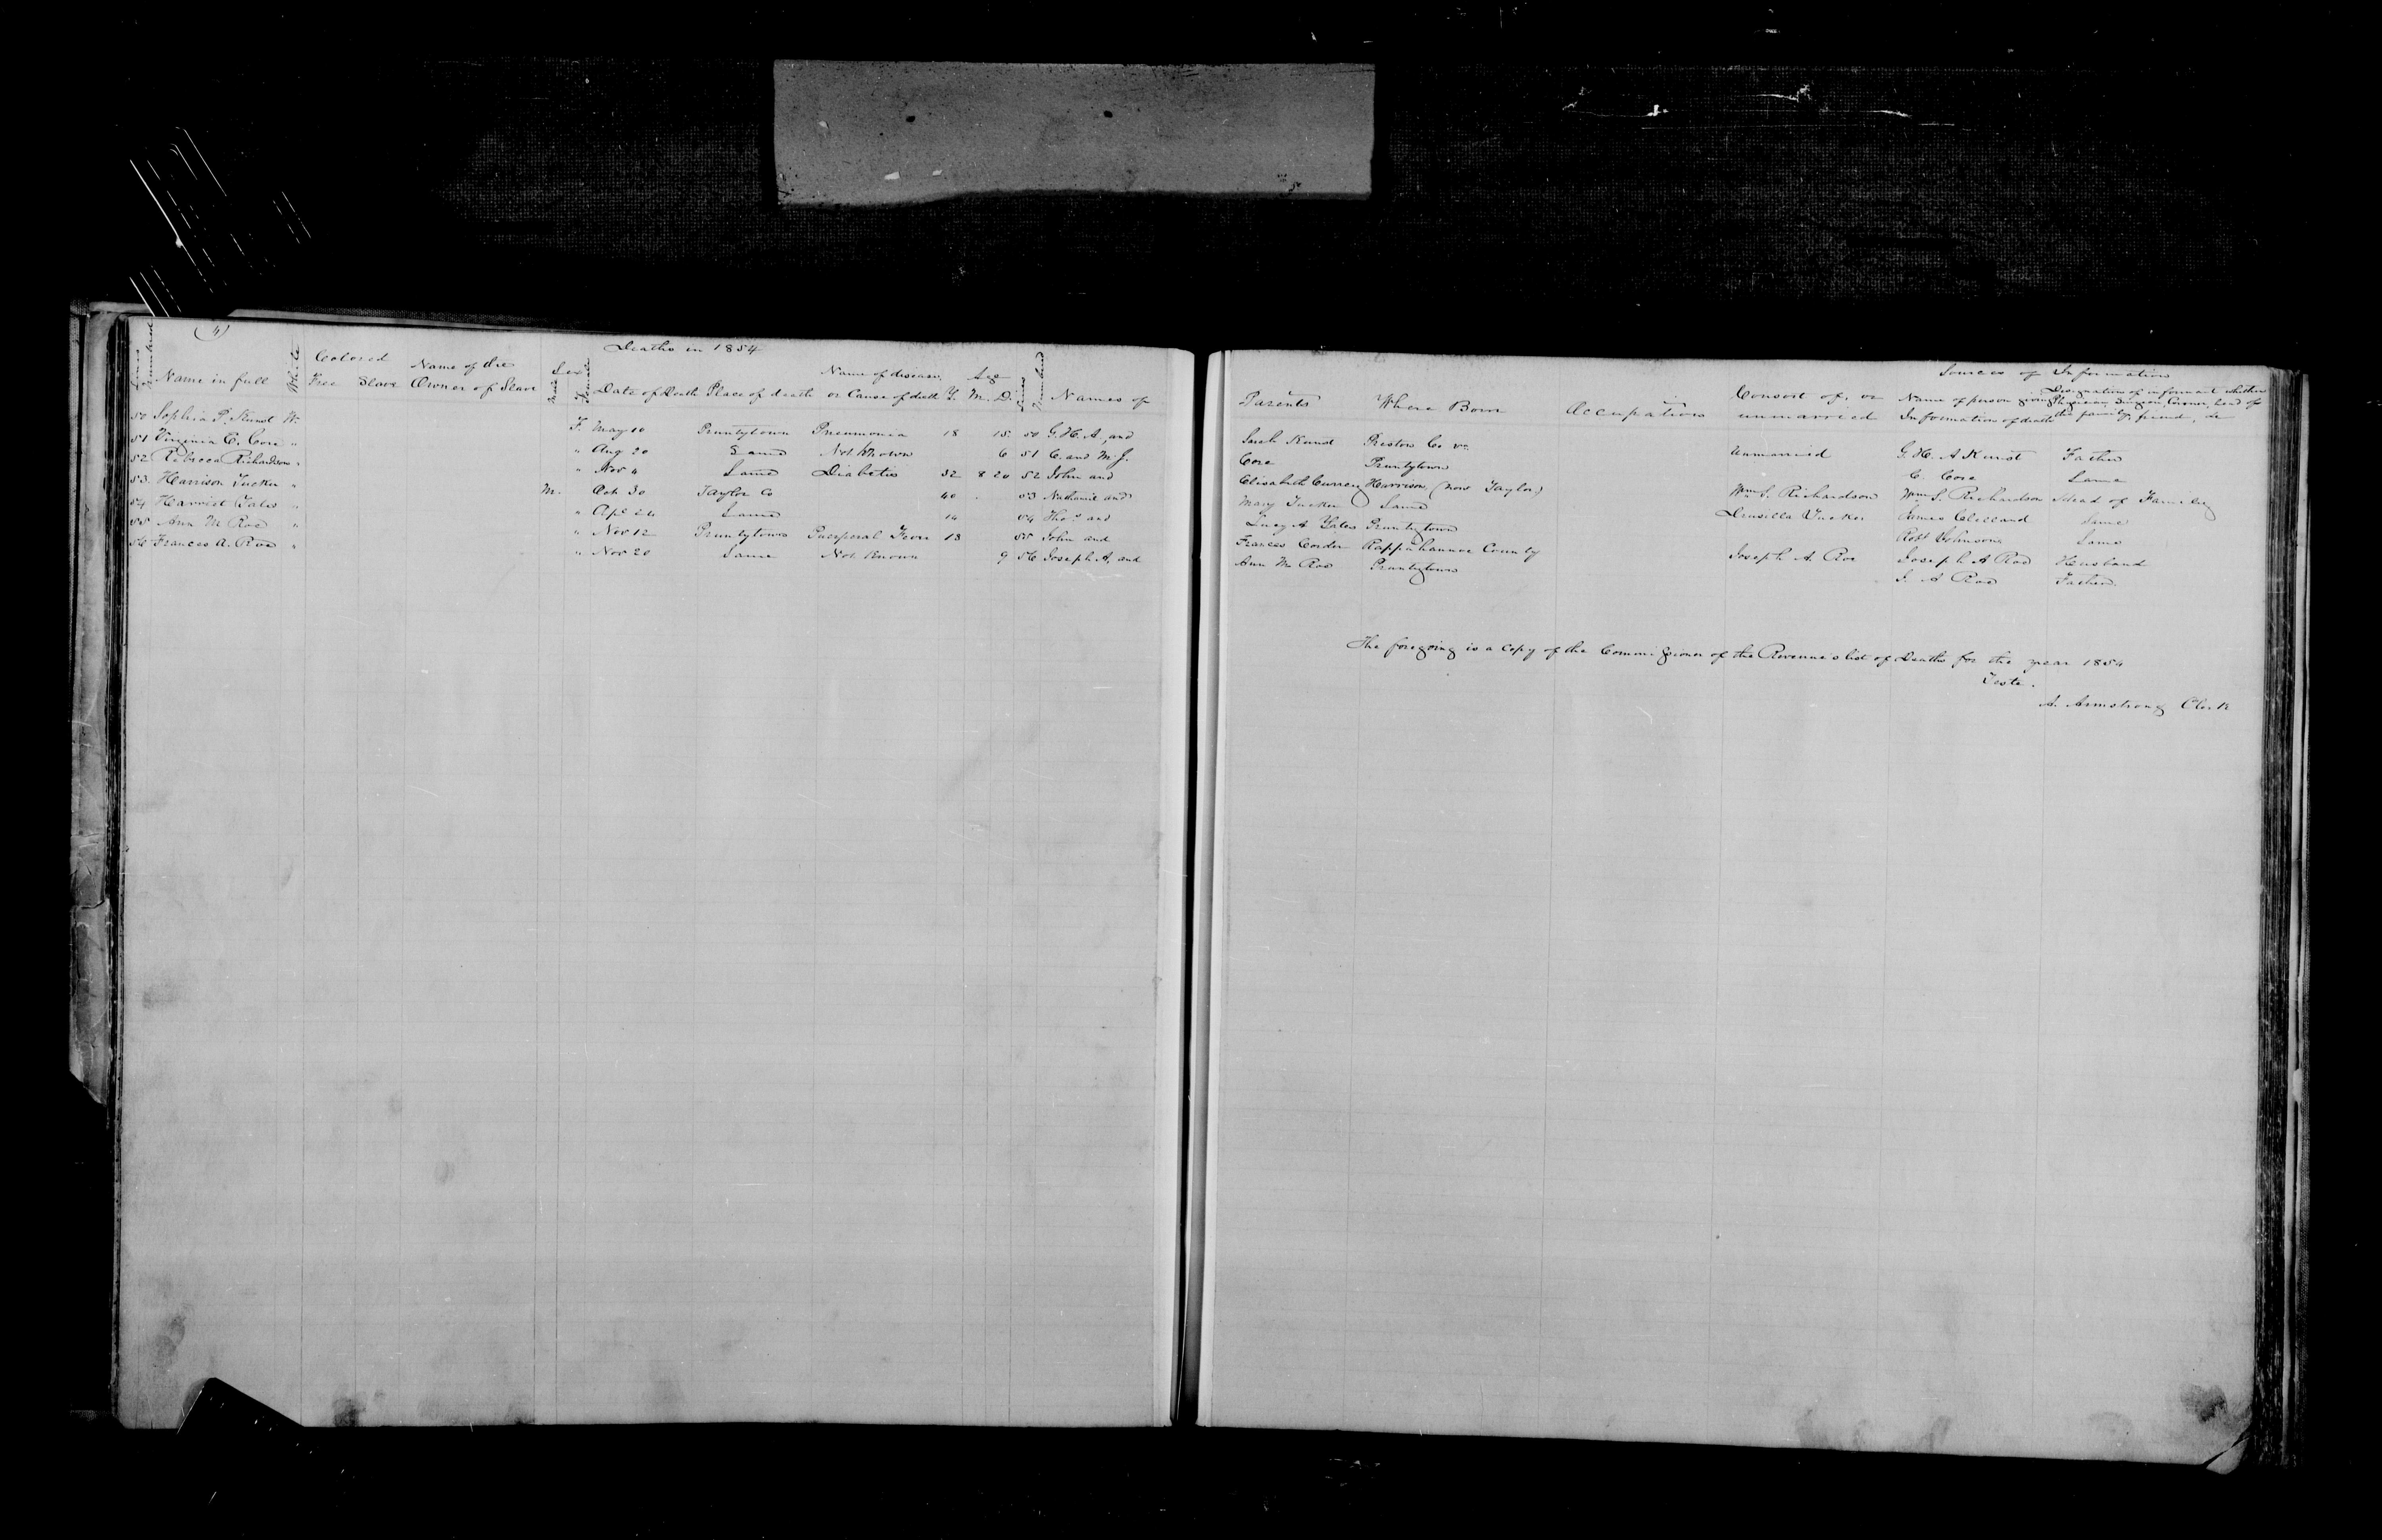 (4)
Deaths in 1854
Lines Numbered Name in full White Colored Free Slave Name of the Owner of Slave Sex Male Female Date of Death Place of death Name of disease, or Cause of death Age Y. M. D. Lines Numbered Names of
50 Sophia P. Kunst W. F. May 10 Pruntytown Pneumonia 18 15 50 G. H. A, and
51 Virginia E. Core " " Aug 20 Same Not Known 6 51 C. and M. J.
52 Rebecca Richardson " " Nov 4 Same Diabetis 32 8 20 52 John and
53. Harrison Tucker " M. Oct 30 Taylor Co 40 53 Nathaniel and
54 Harriet Yates " " Apl 24 Same 14 54 Thos and
55 Ann M Roe " " Nov 12 Pruntytown Puerperal Fever 18 55 John and
56 Frances A. Roe " " Nov 20 Same Not Known 9 56 Joseph A, and
Sources of Information
Parents Where Born Occupation Consort of, or unmarried Name of person giving Information of death Designation of informant whether Physician Surgeon, Coroner, head of the family, friend, &c
Sarah Kunst Preston Co va Unmarried G. H. A Kunst Father
Core Pruntytown C. Core Same
Elisabeth Currey Harrison (now Taylor) Wm S. Richardson Wm S. Richardson Head of Family
Mary Tucker Same Drusilla Tucker James Clelland Same
Lucy A Yates Pruntytown Robt Johnson Same
Frances Corder Rappahannoc County Joseph A. Roe Joseph A Roe Husband
Ann M Roe Pruntytown J. A Roe Father
The foregoing is a copy of the Commissioner of the Revenue's list of Deaths for the year 1854
Teste.
A. Armstrong Clerk